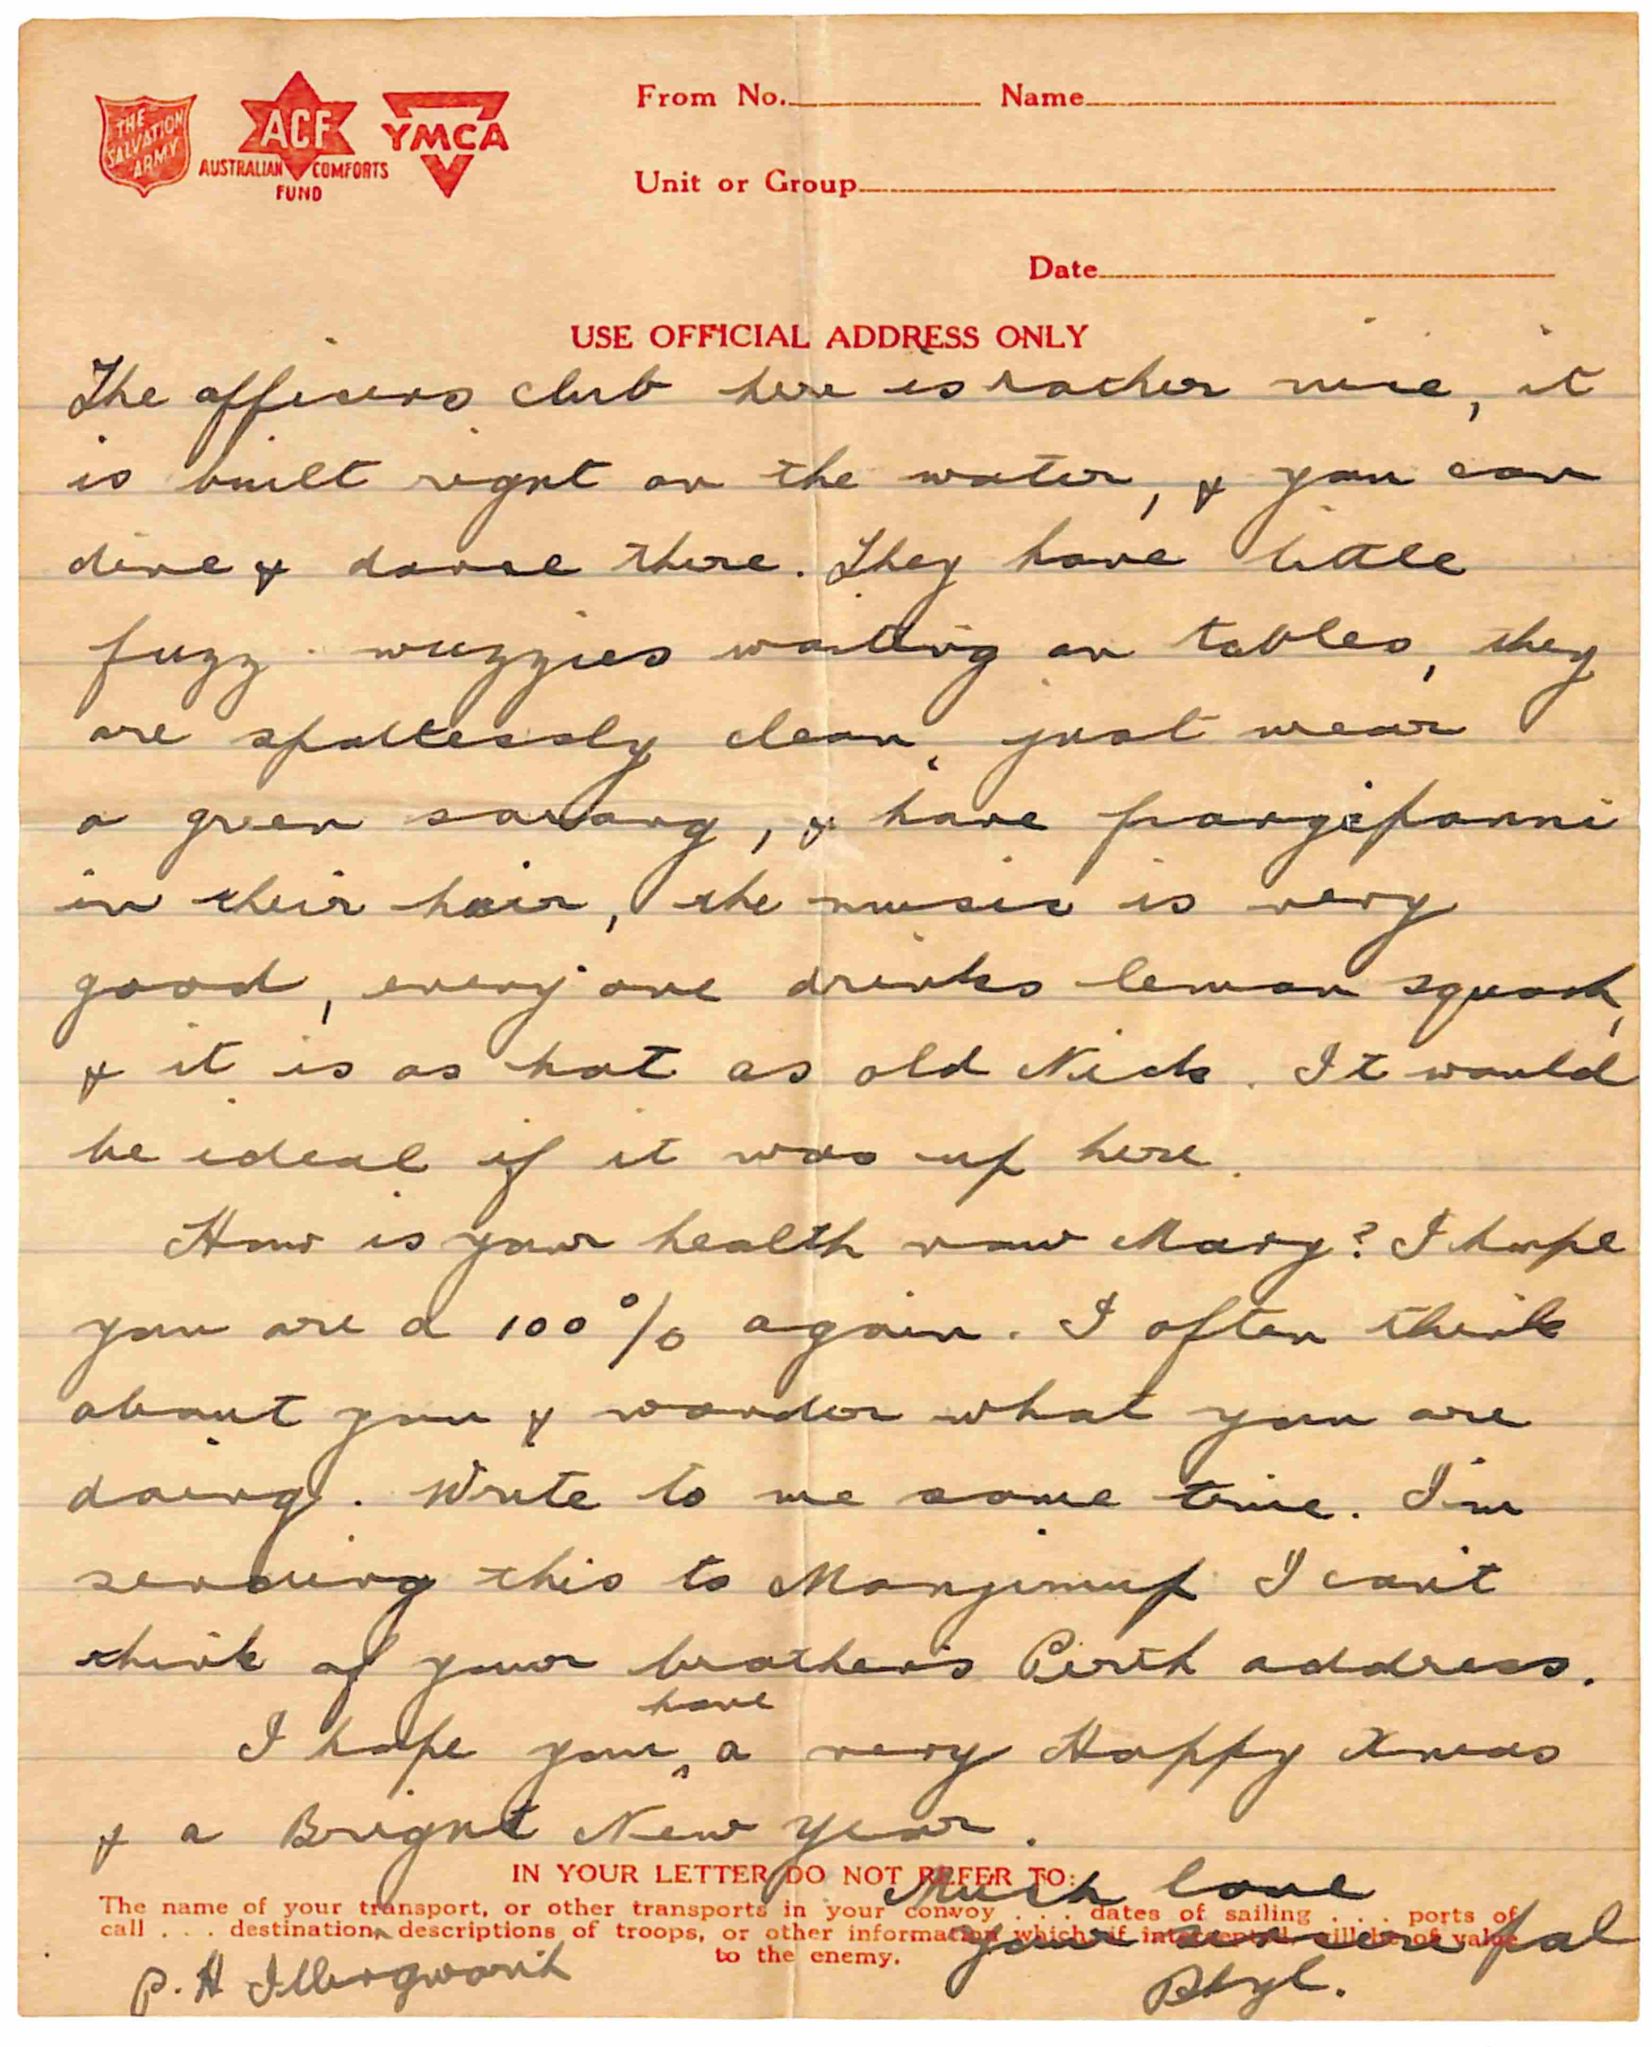 THE SALVATION ARMY
ACF
AUSTRALIAN COMFORTS FUND
YMCA
From No. Name
Unit or Group
Date
USE OFFICIAL ADDRESS ONLY
The officers club here is rather nice, it
is built right on the water, & you can
dine & dance there. They have little
fuzz-wuzzies waiting on tables, they
are spotlessly clean, just wear
a green sarong, & have frangipanni
in their hair, the music is very
good, every one drinks lemon squash,
& it is as hot as old Nick. It would
be ideal if it was up here.
How is your health now Mary? I hope
you are a 100% again. I often think
about you & wonder what you are
doing. Write to me some time. I'm
sending this to Manjimup I can't
think of your brother's Perth address.
I hope you have a very Happy Xmas
& a Bright New Year.
IN YOUR LETTER DO NOT REFER TO:
Much love
The name of your transport, or other transports in your convoy . . . dates of sailing . . . ports of
call . . . destination, descriptions of troops, or other information which, if intercepted, will be of value
to the enemy.
your sincere pal
Beryl.
P. H Illingworth